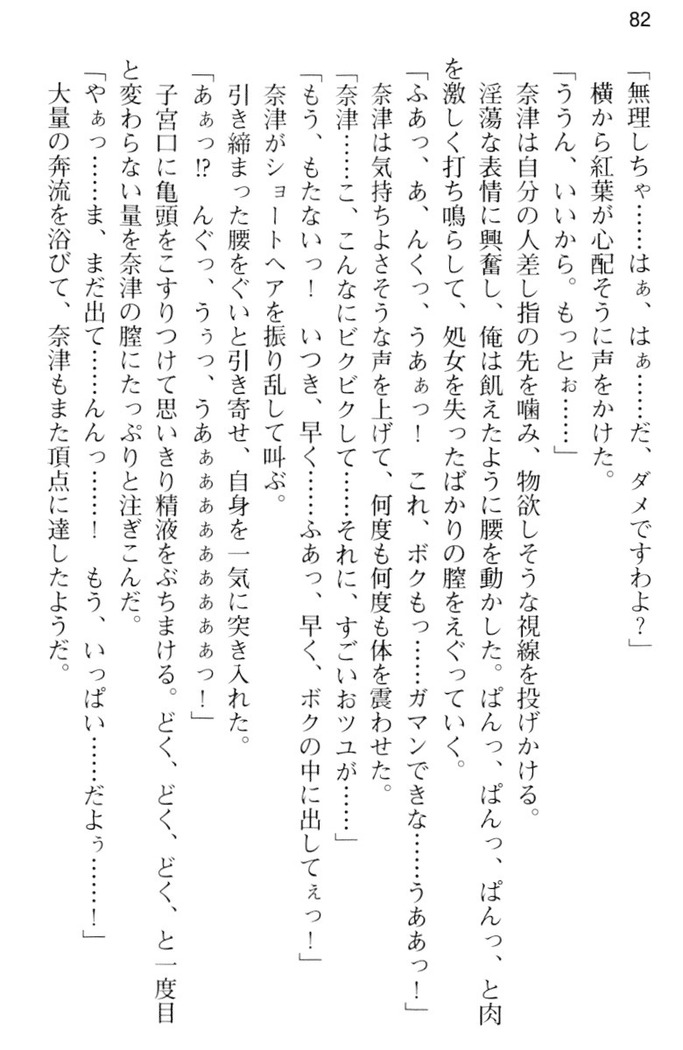 82
「無理しちゃ……はぁ、はぁ……だ、ダメですわよ？」
横から紅葉が心配そうに声をかけた。
「ううん、いいから。もっとぉ……」
奈津は自分の人差し指の先を噛み、物欲しそうな視線を投げかける。
淫蕩な表情に興奮し、俺は飢えたように腰を動かした。ぱんっ、ぱんっ、ぱんっ、と肉
を激しく打ち鳴らして、処女を失ったばかりの膣をえぐっていく。
「ふあっ、あ、んくっ、うあぁっ！　これ、ボクもっ……ガマンできな……うああっ！」
奈津は気持ちよさそうな声を上げて、何度も何度も体を震わせた。
「奈津……こ、こんなにビクビクして……それに、すごいおツユが……」
「もう、もたないっ！　いつき、早く……ふあっ、早く、ボクの中に出してぇっ！」
奈津がショートヘアを振り乱して叫ぶ。
引き締まった腰をぐいと引き寄せ、自身を一気に突き入れた。
「あぁっ!?　んぐっ、うぅっ、うあぁぁぁぁぁぁぁぁぁっ！」
子宮口に亀頭をこすりつけて思いきり精液をぶちまける。どく、どく、どく、と一度目
と変わらない量を奈津の膣にたっぷりと注ぎこんだ。
「やぁっ……ま、まだ出て……んんっ……！　もう、いっぱい……だよぅ……！」
大量の奔流を浴びて、奈津もまた頂点に達したようだ。